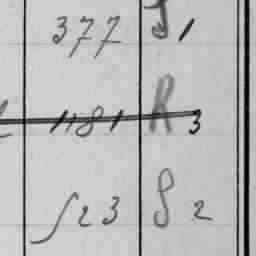 377 S 1
1181 R 3
523 S 2